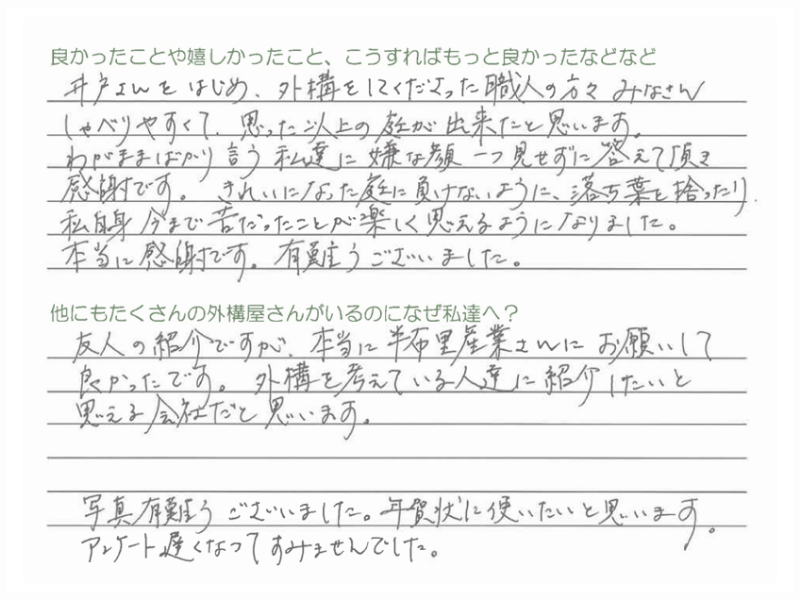 良かったことや嬉しかったこと、こうすればもっと良かったなどなど
井戸さんをはじめ、外構をしてくださった職人の方々 みなさん
しゃべりやすくて、思った以上の庭が出来たと思います。
わがままばかり言う私達に嫌な顔一つ見せずに答えて頂き
感謝です。きれいになった庭に負けないように、落ち葉を捨ったり、
私自身今まで苦だったことが楽しく思えるようになりました。
本当に感謝です。有難うございました。
他にもたくさんの外構屋さんがいるのになぜ私達へ?
友人の紹介ですが、本当に半布里産業さんにお願いして
良かったです。外構を考えている人達に紹介したいと
思える会社だと思います。
写真有難うございました。年賀状に使いたいと思います。
アンケート遅くなってすみませんでした。